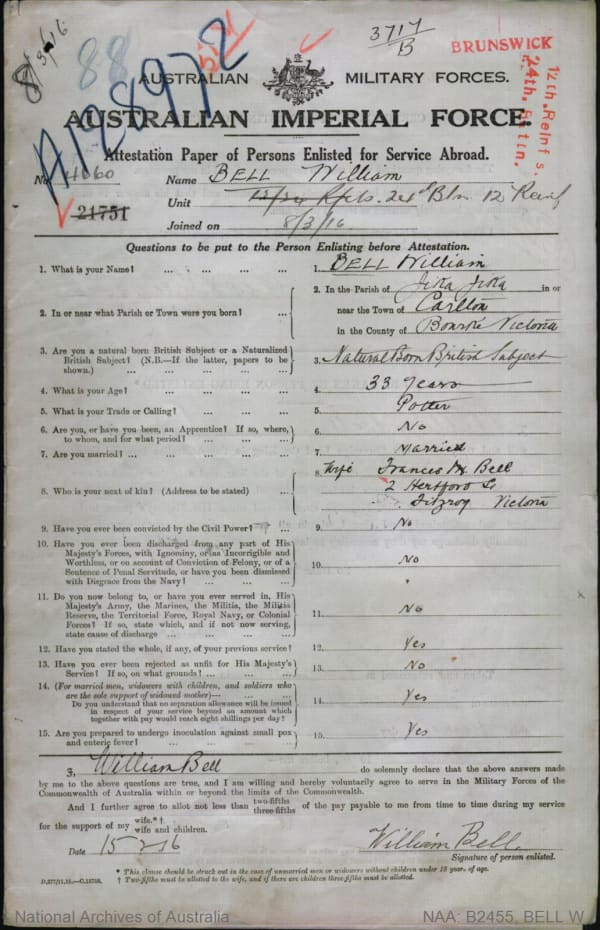 8/3/16
3717/B
BRUNSWICK
12th. Reinf s.
24th. Battn.
88
A128972
AUSTRALIAN MILITARY FORCES.
AUSTRALIAN IMPERIAL FORCE.
Attestation Paper of Persons Enlisted for Service Abroad.
No. 4060 Name BELL William
21751
Unit 24th Btn. 12th Reinf
Joined on 8/3/16
Questions to be put to the Person Enlisting before Attestation.
1. What is your Name? ... ... ... ... 1. BELL William
2. In or near what Parish or Town were you born? ... 2. In the Parish of Jika Jika in or
near the Town of Carlton
in the County of Bourke Victoria
3. Are you a natural born British Subject or a Naturalized
British Subject? (N.B.—If the latter, papers to be
shown.) ... ... ... ... ... 3. Natural Born British Subject
4. What is your Age? ... ... ... 4. 33 years
5. What is your Trade or Calling? ... ... ... 5. Potter
6. Are you, or have you been, an Apprentice? If so, where,
to whom, and for what period? ... ... ... 6. No
7. Are you married? ... ... ... ... 7. Married
8. Who is your next of kin? (Address to be stated) ... 8. Wife Frances M Bell
2 Hertford St
Fitzroy Victoria
9. Have you ever been convicted by the Civil Power? ... 9. No
10. Have you ever been discharged from any part of His
Majesty's Forces, with Ignominy, or as Incorrigible and
Worthless, or on account of Conviction of Felony, or of a
Sentence of Penal Servitude, or have you been dismissed
with Disgrace from the Navy? ... ... ... 10. No
11. Do you now belong to, or have you ever served in, His
Majesty's Army, the Marines, the Militia, the Militia
Reserve, the Territorial Force, Royal Navy, or Colonial
Forces? If so, state which, and if not now serving,
state cause of discharge ... ... ... ... 11. No
12. Have you stated the whole, if any, of your previous service? 12. Yes
13. Have you ever been rejected as unfit for His Majesty's
Service? If so, on what grounds? ... ... ... 13. No
14. (For married men, widowers with children, and soldiers who
are the sole support of widowed mother)—
Do you understand that no separation allowance will be issued
in respect of your service beyond an amount which
together with pay would reach eight shillings per day? 14. Yes
15. Are you prepared to undergo inoculation against small pox
and enteric fever? ... ... ... ... 15. Yes
I, William Bell do solemnly declare that the above answers made
by me to the above questions are true, and I am willing and hereby voluntarily agree to serve in the Military Forces of the
Commonwealth of Australia within or beyond the limits of the Commonwealth.
And I further agree to allot not less than two-fifths three-fifths of the pay payable to me from time to time during my service
for the support of my wife.* † wife and children.
Date 15 2 16 William Bell.
Signature of person enlisted.
* This clause should be struck out in the case of unmarried men or widowers without children under 18 years of age.
† Two-fifths must be allotted to the wife, and if there are children three-fifths must be allotted.
National Archives of Australia NAA: B2455, BELL W